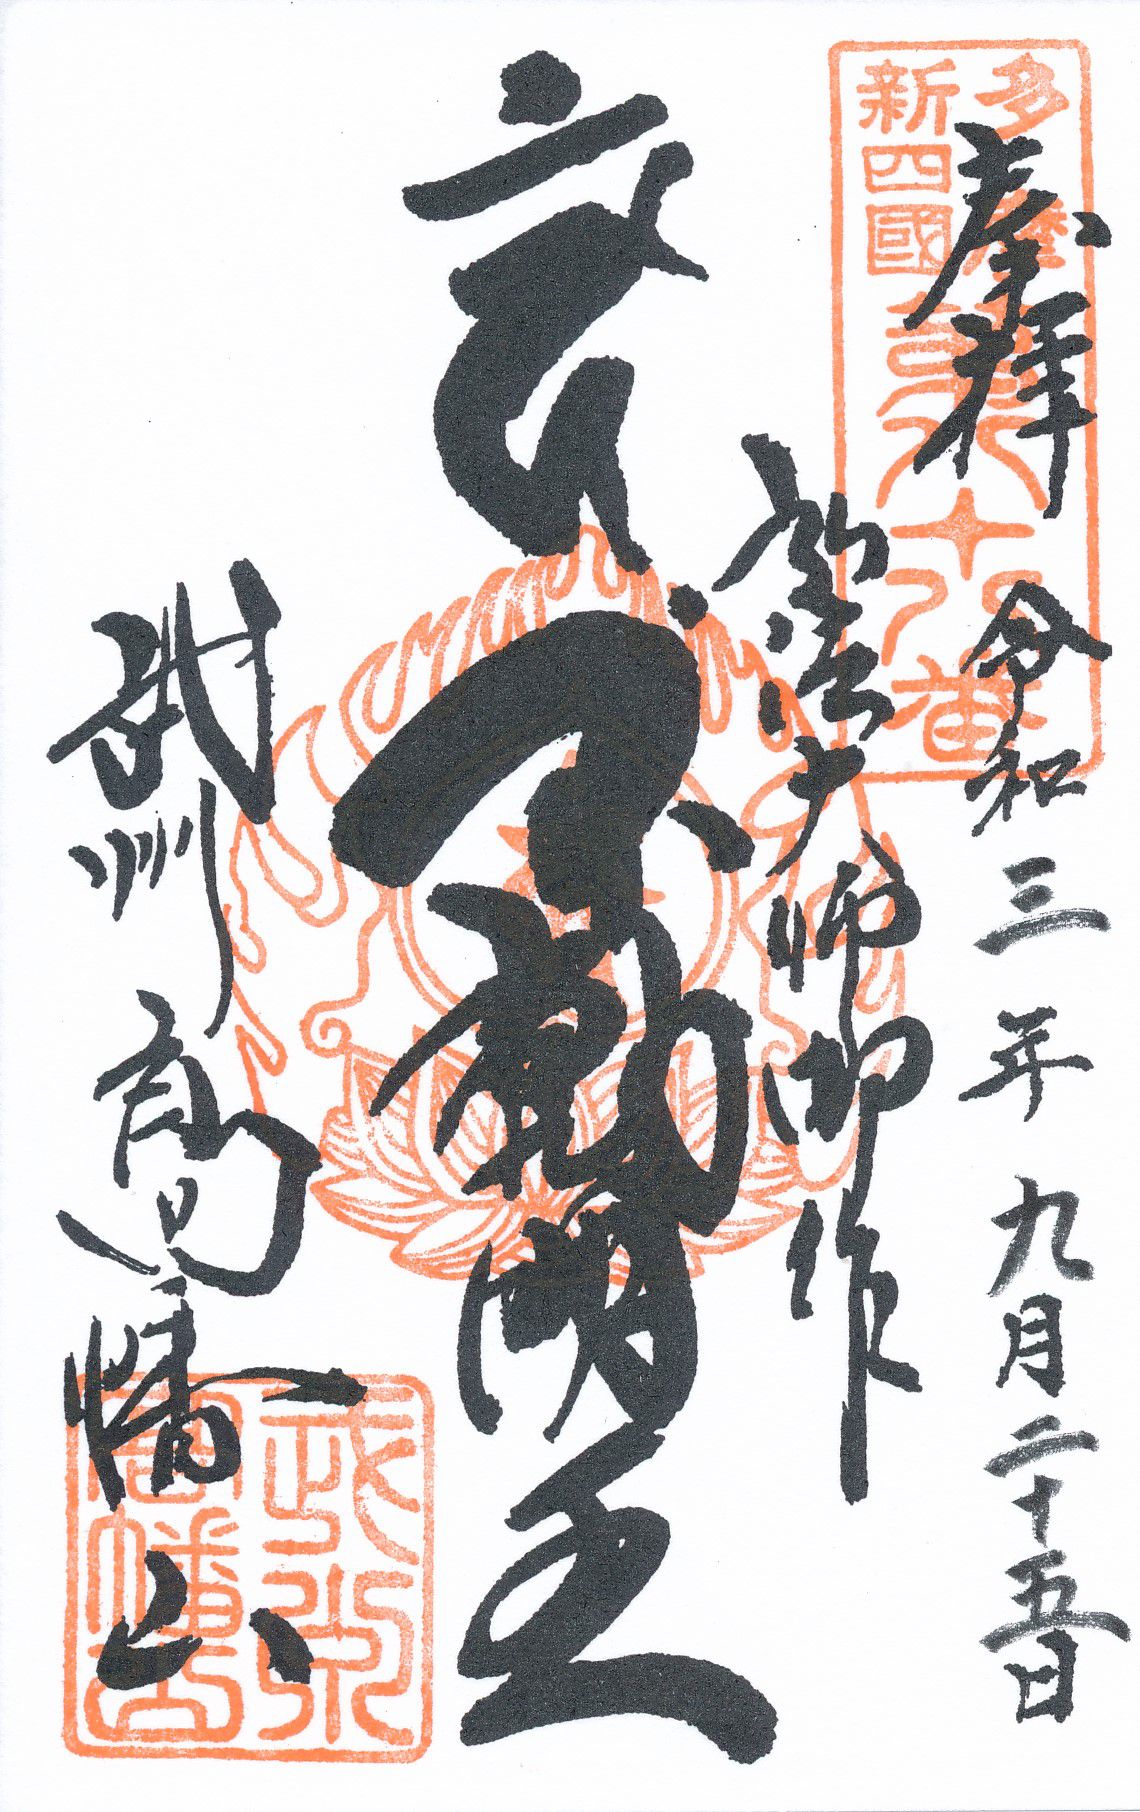 多摩
新四國
第八十八番
奉拝
令和三年九月二十五日
大師御作
不動明王
武州高幡山
武州
高幡山